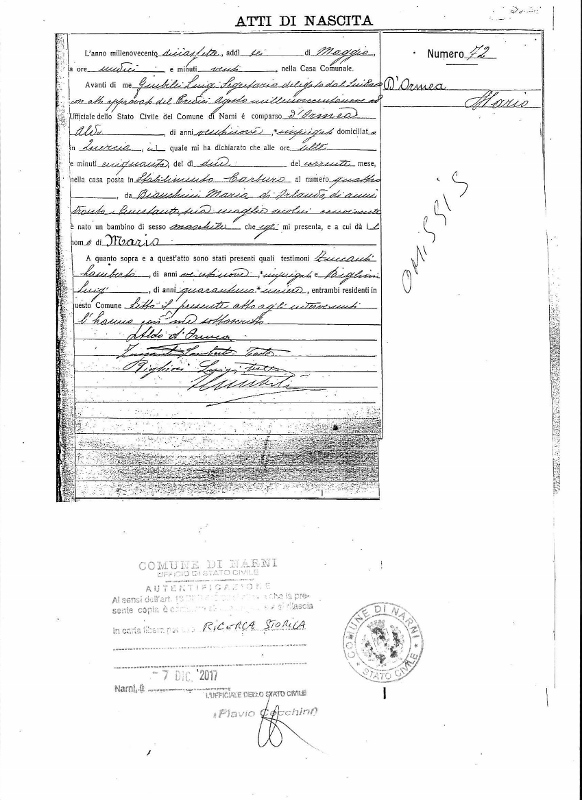 ATTI DI NASCITA
Numero 72
D'Ormea
Mario
OMISSIS
L'anno millenovecento diciasette, addì sei di Maggio
a ore undici e minuti venti, nella Casa Comunale.
Avanti di me Luigi Segretario delegato dal
Ufficiale dello Stato Civile del Comune di Narni è comparso D'Ormea
Aldo di anni ventinove impiegato domiciliato
in , il quale mi ha dichiarato che alle ore
e minuti cinquanta, del dì due del corrente mese,
nella casa posta in Stabilimento Carburo al numero quattro
, da Bianchini Maria di anni
trenta, sua moglie seco lui convivente
è nato un bambino di sesso maschile che egli mi presenta, e a cui dà il
nome di Mario
A quanto sopra e a quest'atto sono stati presenti quali testimoni
Lamberto, di anni impiegato e Righini
Luigi, di anni quarantuno, entrambi residenti in
questo Comune. Letto il presente atto agli intervenuti
l'hanno con me sottoscritto
Aldo d'Ormea
Lamberto Teste
Righini Luigi Teste
COMUNE DI NARNI
UFFICIO DI STATO CIVILE
AUTENTIFICAZIONE
Ai sensi dell'art. che la pre-
sente copia è si rilascia
in carta libera per uso RICERCA STORICA
Narni, lì 7 DIC. 2017
L'UFFICIALE DELLO STATO CIVILE
Flavio Cecchini
COMUNE DI NARNI
STATO CIVILE